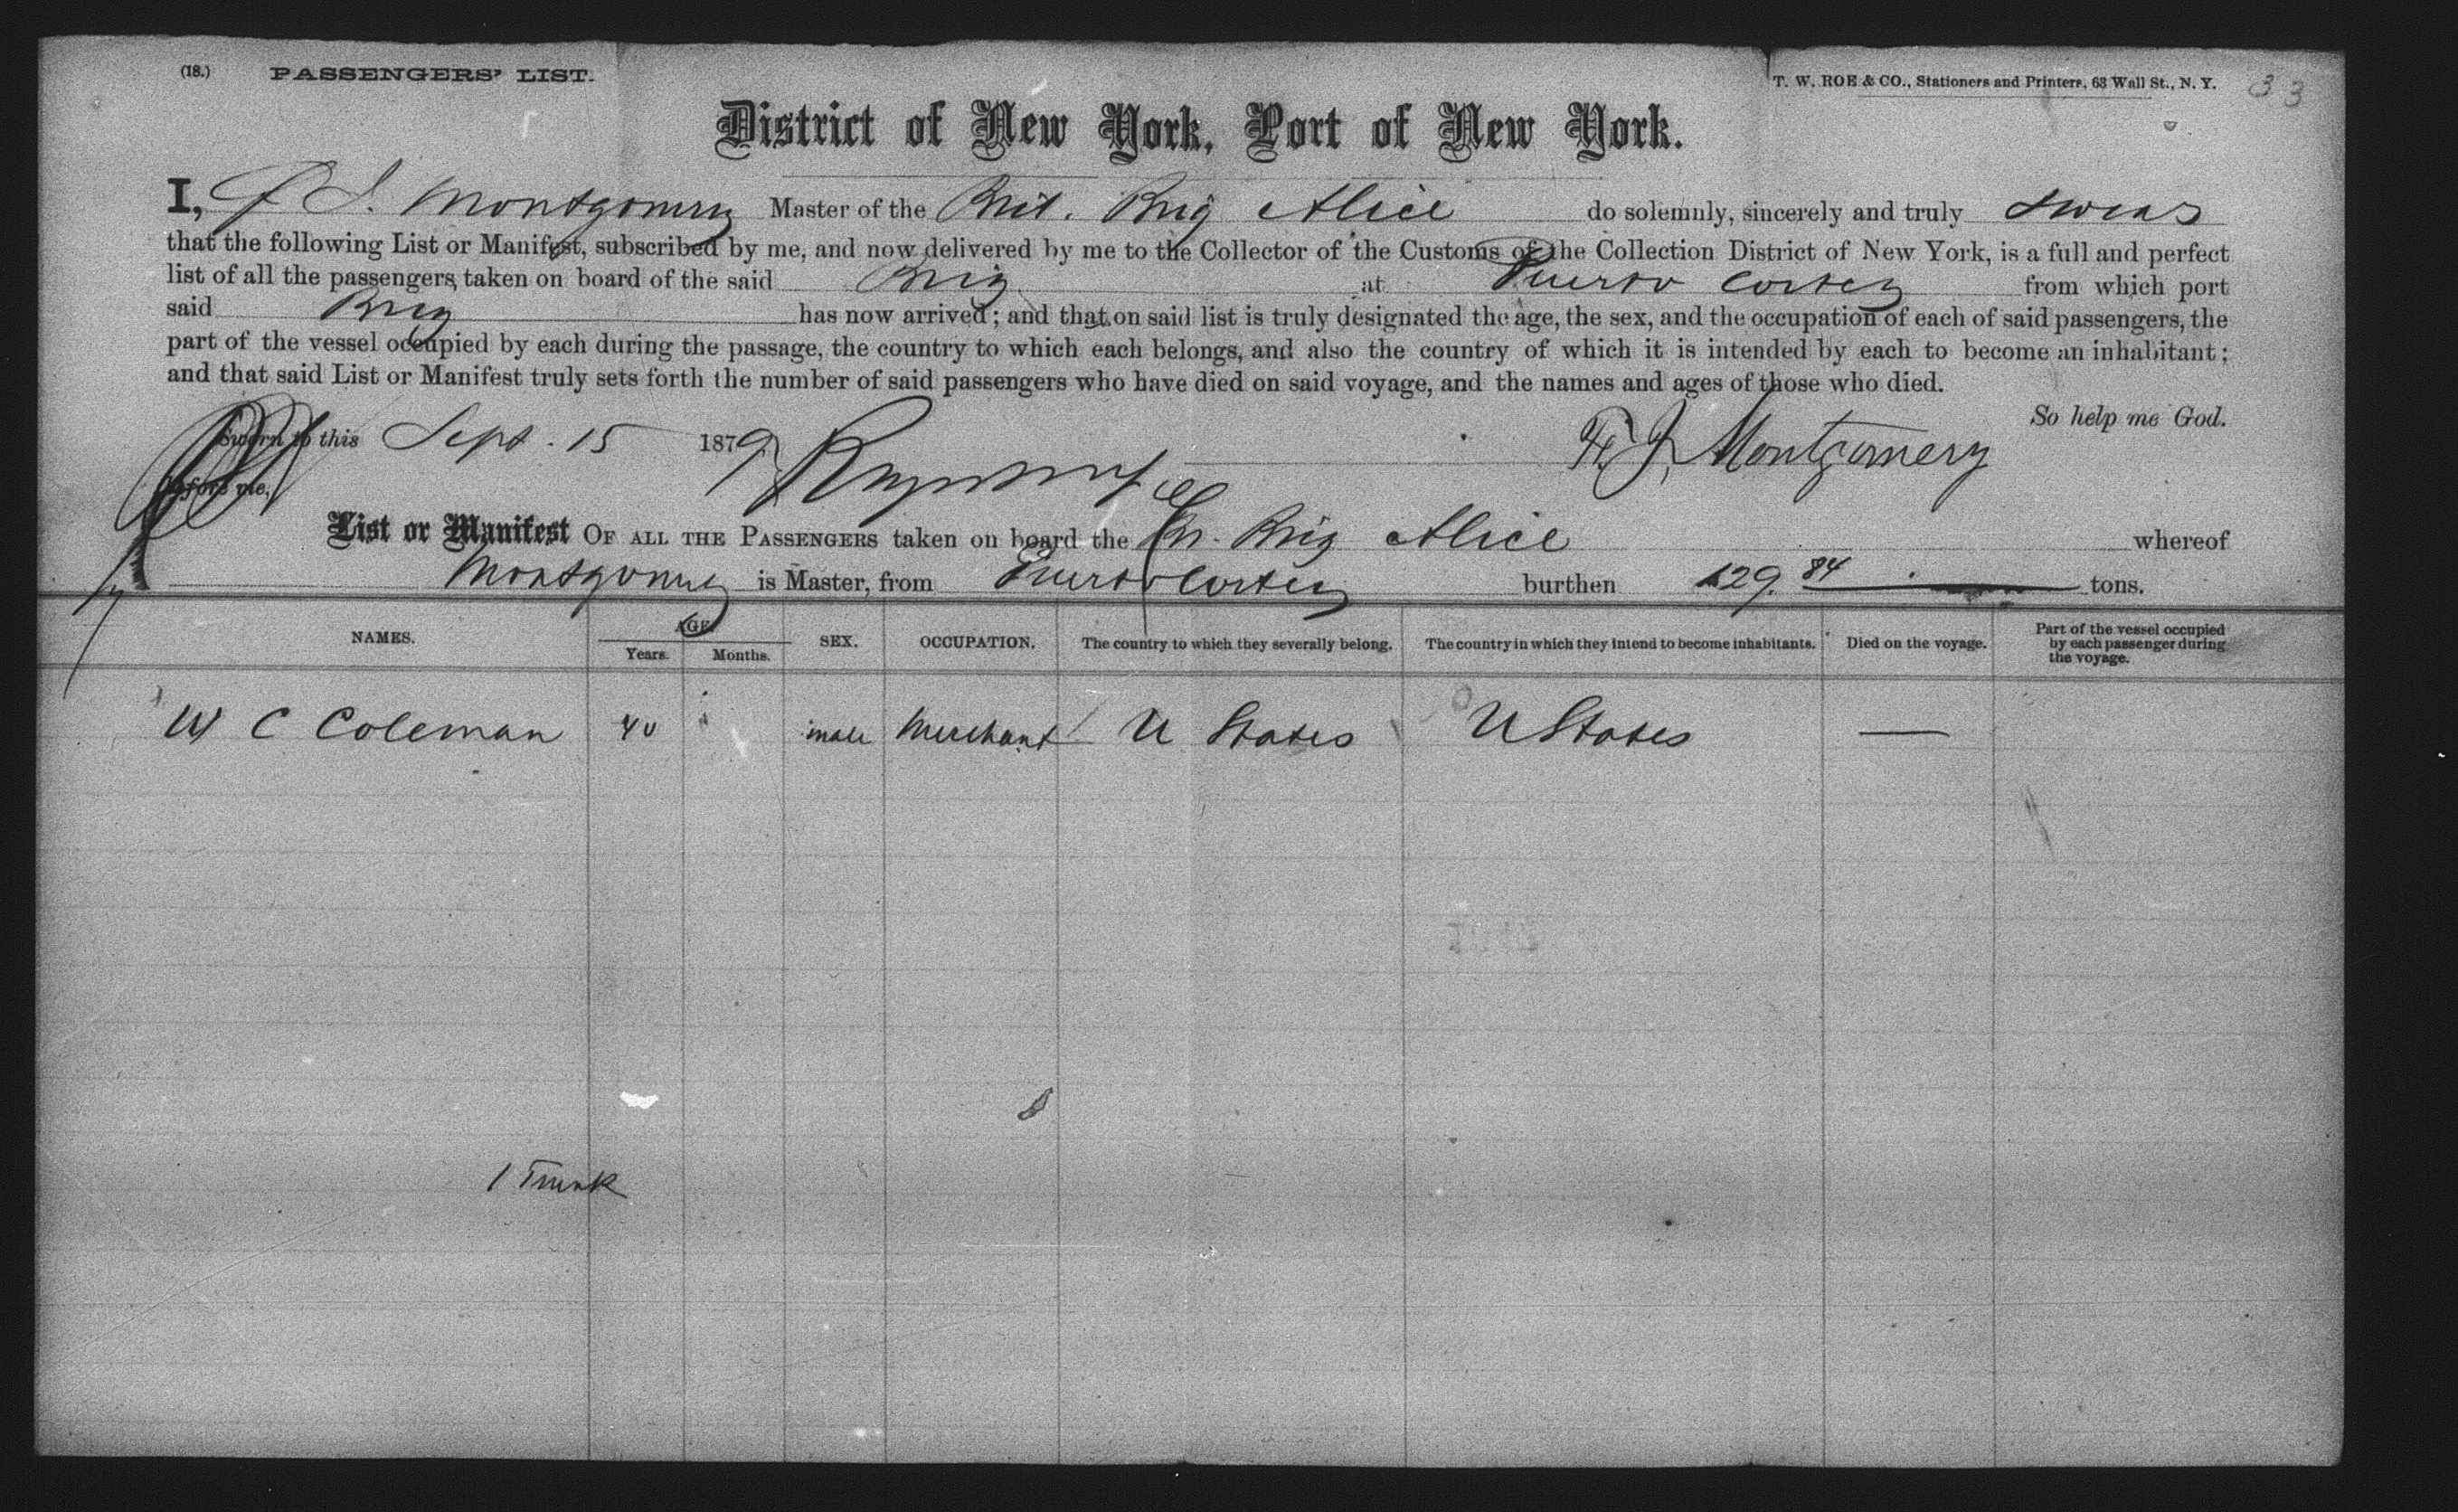 (18.) PASSENGERS' LIST. T. W. ROE & CO., Stationers and Printers, 63 Wall St., N. Y. 33
District of New York, Port of New York.
I, Montgomery Master of the Brit. Brig Alice do solemnly, sincerely and truly swear
that the following List or Manifest, subscribed by me, and now delivered by me to the Collector of the Customs of the Collection District of New York, is a full and perfect
list of all the passengers taken on board of the said Brig at Puerto Cortez from which port
said Brig has now arrived; and that on said list is truly designated the age, the sex, and the occupation of each of said passengers, the
part of the vessel occupied by each during the passage, the country to which each belongs, and also the country of which it is intended by each to become an inhabitant;
and that said List or Manifest truly sets forth the number of said passengers who have died on said voyage, and the names and ages of those who died.
So help me God.
Sworn to this Sept. 15 1879 Montgomery
before me,
List or Manifest OF ALL THE PASSENGERS taken on board the Br. Brig Alice whereof
Montgomery is Master, from Puerto Cortez burthen 129.84 tons.
NAMES. AGE. Years. Months. SEX. OCCUPATION. The country to which they severally belong. The country in which they intend to become inhabitants. Died on the voyage. Part of the vessel occupied by each passenger during the voyage.
W C Coleman 40 male Merchant U States U States —
1 Trunk